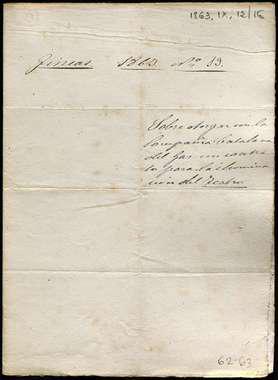 1863, IX, 12/16
Fincas 1863 Nº 33.
Sobre otorgar con la
Compañia Catalana
del Gas un contra
to para la ilumina
cion del Teatro
62-63